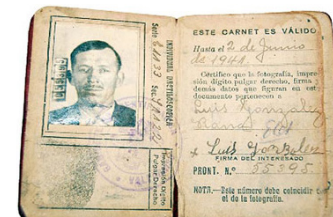 Serie 61433 Sec. 41422
INDIVIDUAL DACTILOSCOPICA
Impresión Digito
Pulgar Derecho
ESTE CARNET ES VÁLIDO
Hasta el 2 de Junio
de 1941
Certifico que la fotografía, impre
sión dígito pulgar derecho, firma y
demás datos que figuran en est
documento pertenecen a
Luis Gonzalez
Luis Gonzalez
FIRMA DEL INTERESADO
PRONT. N.º 55395
NOTA.—Este número debe coincidir
el de la fotografía.